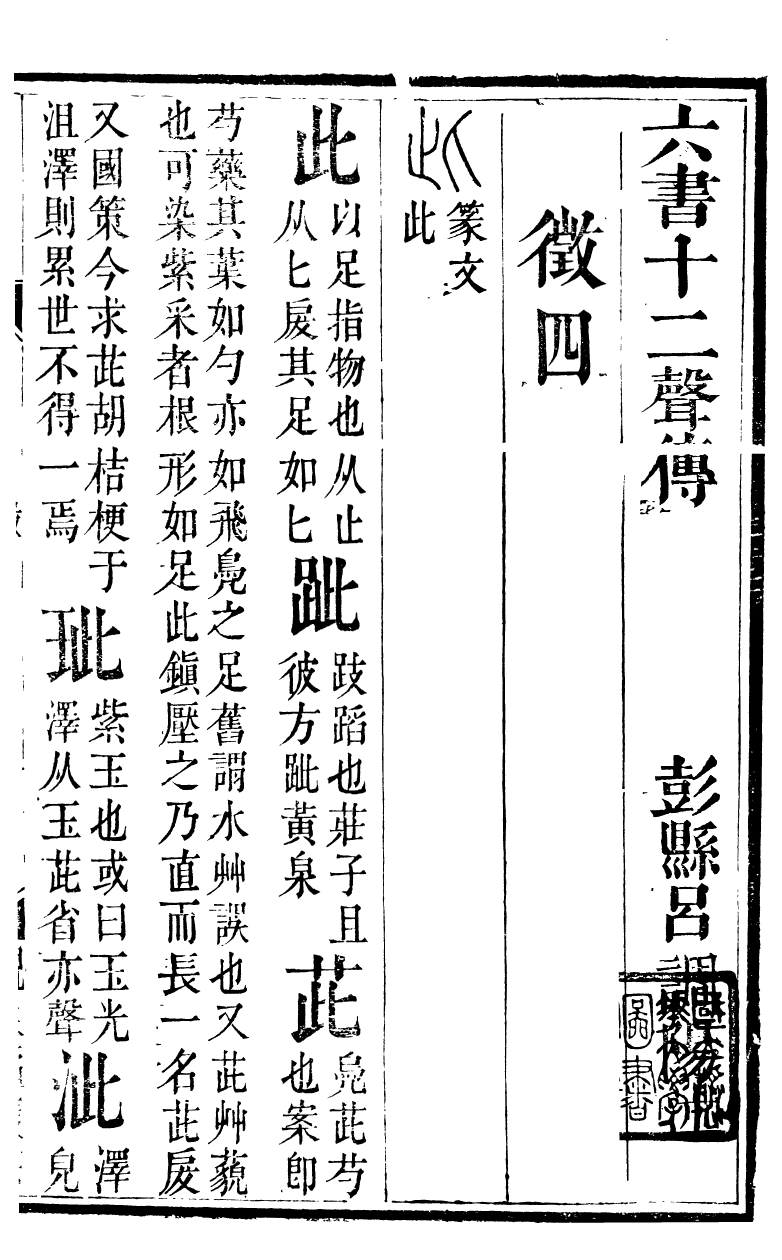 六書十二聲傳 彭縣呂
圖書
徵四
篆文
此
此
以足指物也从止
从匕戾其足如匕
跐
跂蹈也莊子且
彼方跐黃泉
茈
鳧茈芍
也案即
芍藥其葉如勺亦如飛鳧之足舊謂水艸誤也又茈艸藐
也可染紫采者根形如足此鎮壓之乃直而長一名茈戾
又國策今求茈胡桔梗于
沮澤則累世不得一焉
玼
紫玉也或曰玉光
澤从玉茈省亦聲
泚
澤
皃